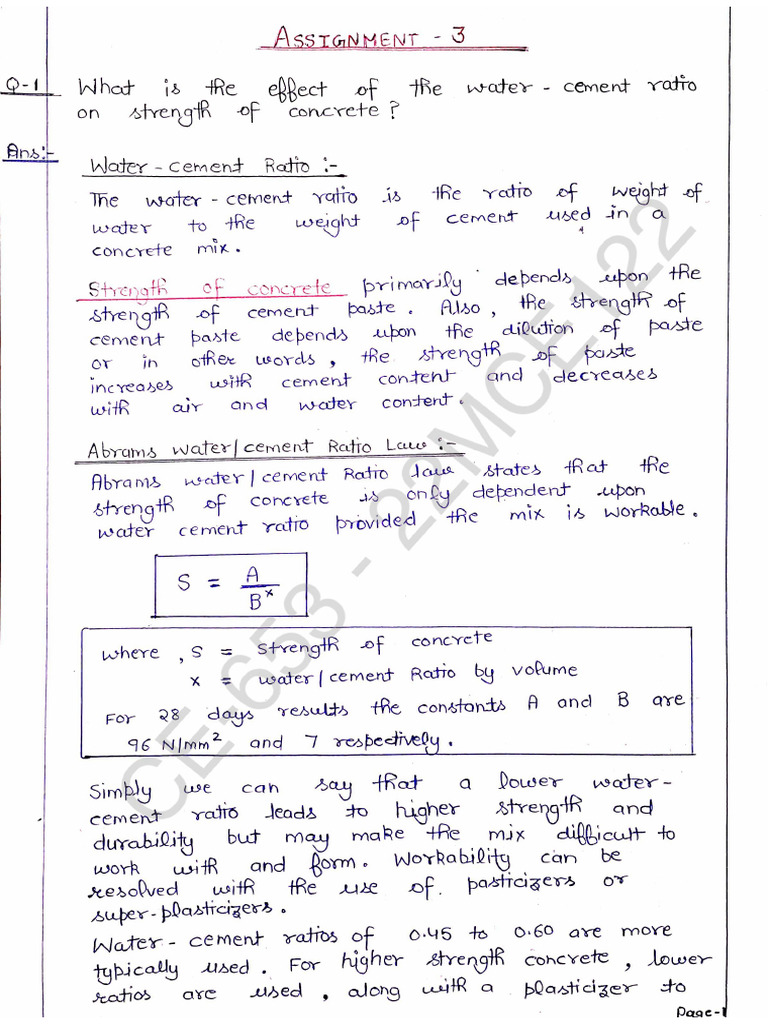 ASSIGNMENT - 3
Q-1 What is the effect of the water - cement ratio
on strength of concrete?
Ans:-
Water - cement Ratio :-
The water - cement ratio is the ratio of weight of
water to the weight of cement used in a
concrete mix.
Strength of concrete primarily depends upon the
strength of cement paste. Also, the strength of
cement paste depends upon the dilution of paste
or in other words, the strength of paste
increases with cement content and decreases
with air and water content.
Abrams water/cement Ratio Law :-
Abrams water/cement Ratio law states that the
strength of concrete is only dependent upon
water cement ratio provided the mix is workable.
S = A / B^x
where, S = strength of concrete
x = water/cement Ratio by volume
For 28 days results the constants A and B are
96 N/mm² and 7 respectively.
Simply we can say that a lower water-
cement ratio leads to higher strength and
durability but may make the mix difficult to
work with and form. Workability can be
resolved with the use of pasticizers or
super-plasticizers.
Water - cement ratios of 0.45 to 0.60 are more
typically used. For higher strength concrete, lower
ratios are used, along with a plasticizer to
Page-1
CE-653 - 22MCE122